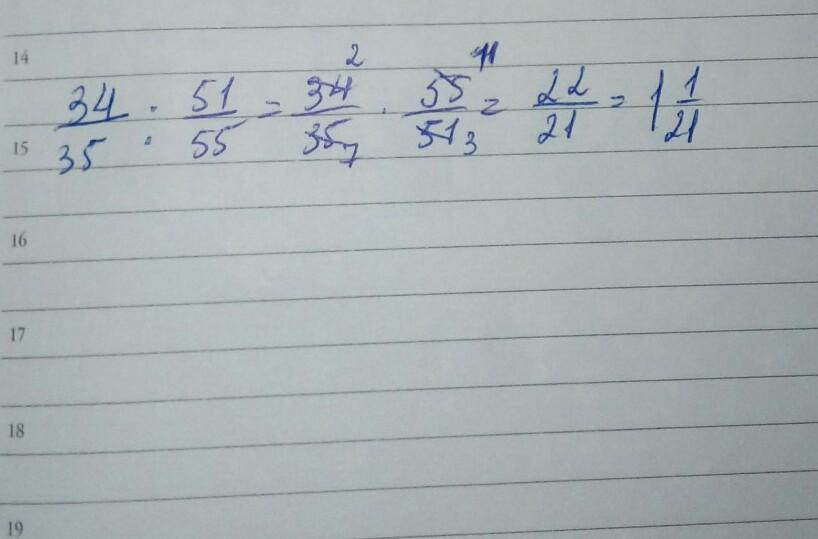 14
34/35 : 51/55 = 34/35 2 7 · 55/51 11 3 = 22/21 = 1 1/21
15
16
17
18
19